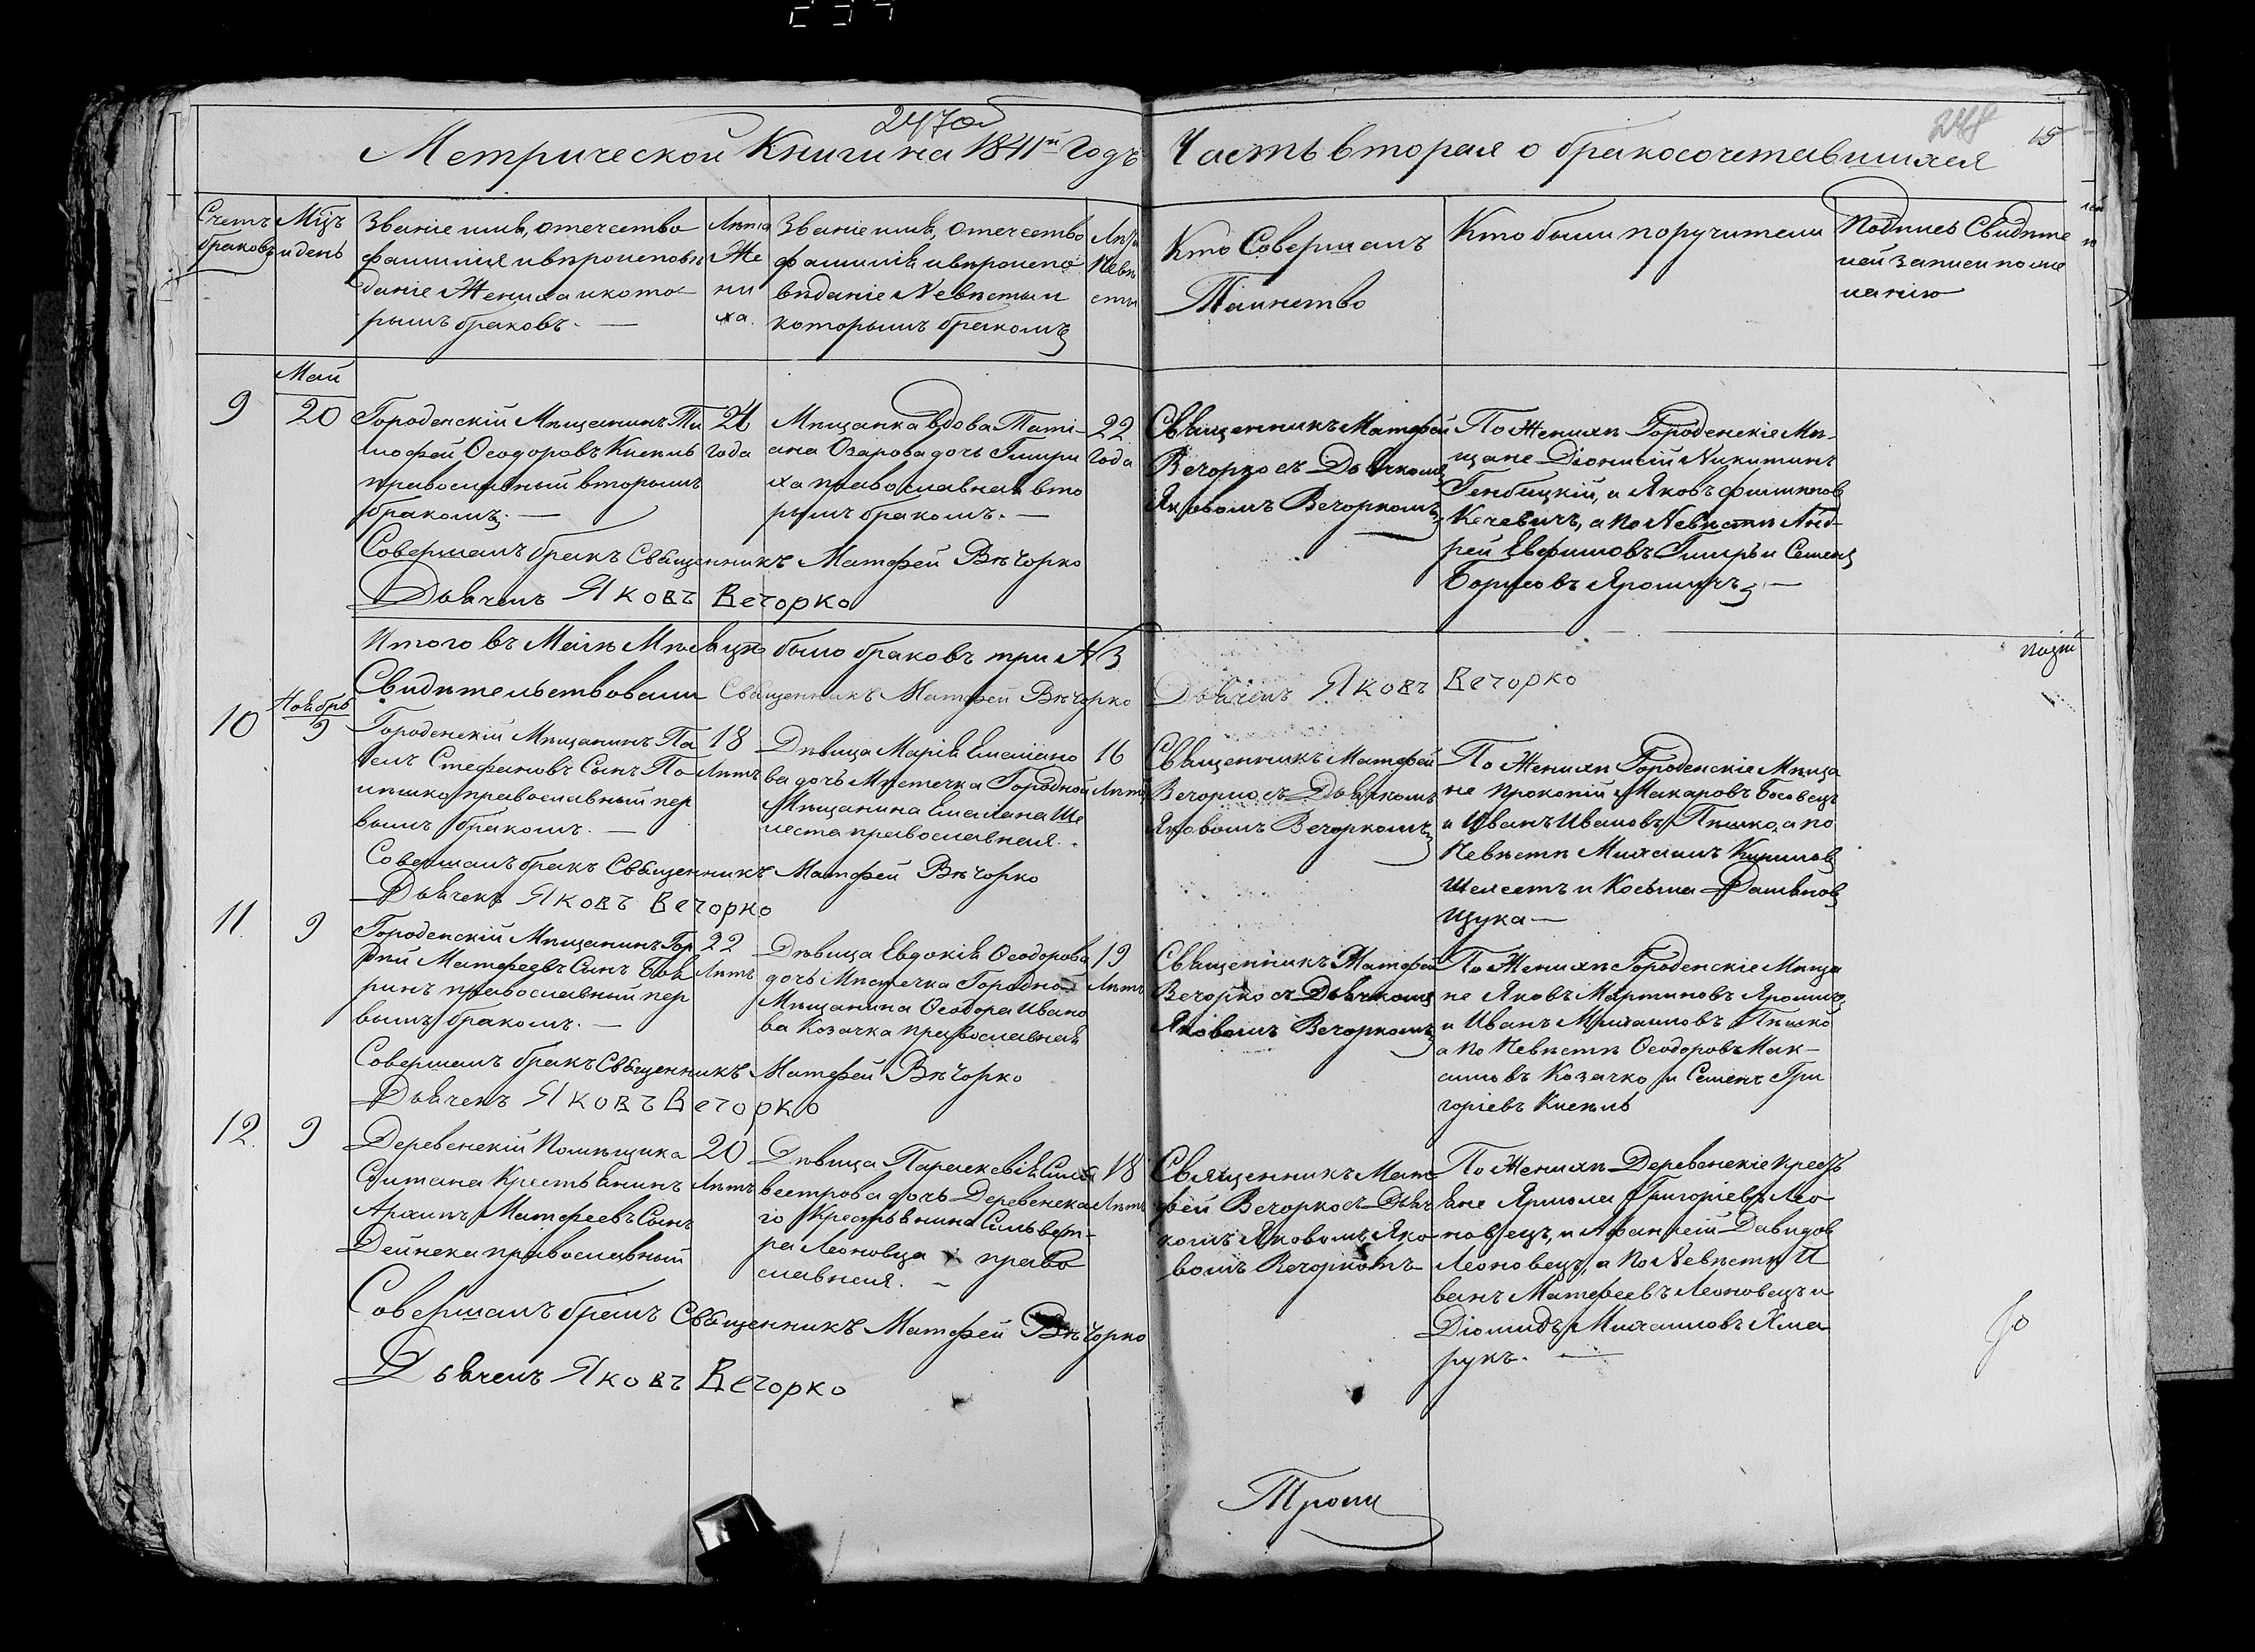 247об
Метрической Книги на 1841й Годъ
Часть вторая о бракосочетавшихся
248
15
Счетъ
браковъ
Мцъ
и день
Званіе имя, отчество
фамилія и вѣроисповѣ
даніе Жениха и кото-
рымъ бракомъ. —
Лѣта
Же
ни
ха.
Званіе имя, Отчество
фамилія и вѣроиспо
вѣданіе Невѣсты и
которымъ бракомъ
Лѣта
Невѣ
сты
Кто Совершалъ
Таинство
Кто были поручители
Подпись Свидѣте
лей записи по же
ланію
Май
9
20
Городенскій Мѣщанинъ Ти
мофей Ѳеодоровъ Кисель
православный вторымъ
бракомъ. —
21
года
Мѣщанка вдова Таті-
ана Озарова дочь Гмири
ха православная вто
рымъ бракомъ. —
22
Года
Священникъ Матфей
Вечорко съ Дьячкомъ
Яковомъ Вечоркомъ
По Женихѣ Городенскіе Мѣ-
щане Діонисій Никитинъ
Генбицкій, и Яковъ Филиповъ
Качевичъ, а по Невѣстѣ Анд-
рей Евфимовъ Гмиръ и Семенъ
Борисовъ Яромичъ —
Совершалъ бракъ Священникъ Матфей Вѣчорко
Дьячекъ Яковъ Вечорко
Итого въ Маіѣ Мѣсяцѣ было браковъ три № 3
Свидѣтельствовали Священникъ Матфей Вѣчорко Дьячекъ Яковъ Вечорко
10
Ноябрь
9
Городенскій Мѣщанинъ Па
велъ Стефановъ Сынъ По
лѣшко православный пер
вымъ бракомъ. —
18
Лѣтъ
Дѣвица Марія Емелiано
ва дочь Мѣстечка Городной
Мѣщанина Емелiана Ше
леста православная.
16
Лѣтъ
Священникъ Матфей
Вечорко съ Дьячкомъ
Яковомъ Вечоркомъ
По Женихѣ Городенскіе Мѣща
не Прокопій Макаровъ Босовецъ
и Иванъ Ивановъ Пѣшко, а по
Невѣстѣ Михаилъ Кириловъ
Шелестъ и Косьма Дамiановъ
Щука —
Совершалъ бракъ Священникъ Матфей Вѣчорко
Дьячекъ Яковъ Вечорко
11
9
Городенскій Мѣщанинъ Гор
дѣй Матфеевъ Сынъ Боя
ринъ православный пер
вымъ бракомъ. —
22
Лѣтъ
Дѣвица Евдокія Ѳеодорова
дочь Мѣстечка Городной
Мѣщанина Ѳеодора Ивано
ва Козачка православная
19
Лѣтъ
Священникъ Матфей
Вечорко съ Дьячкомъ
Яковомъ Вечоркомъ
По Женихѣ Городенскіе Мѣща
не Яковъ Мартиновъ Яромичъ
и Иванъ Михаиловъ Пѣшко
а по Невѣстѣ Ѳеодоровъ Мак-
симовъ Козачко и Семенъ Гри
горіевъ Кисель
Совершалъ бракъ Священникъ Матфей Вѣчорко
Дьячекъ Яковъ Вечорко
12.
9
Деревенскій Помѣщика
Крестьянинъ
Архипъ Матфеевъ Сынъ
Дейнека православный
20
Лѣтъ
Дѣвица Параскевія Силь
вестрова дочь Деревенска
го Крестьянина Сильвест-
ра Леоновца право
славная. —
18
Лѣтъ
Священникъ Мат
фей Вечорко съ Дьяч
комъ Яковомъ Яко
вомъ Вечоркомъ
По Женихѣ Деревенскіе крестъ
яне Ярмола Григоріевъ Лео
новецъ, и Афанасій Давидов
Леоновецъ, а по Невѣстѣ И
ванъ Матфеевъ Леоновецъ и
Діомидъ Михаиловъ Хма
рукъ. —
Совершалъ бракъ Священникъ Матфей Вѣчорко
Дьячекъ Яковъ Вечорко